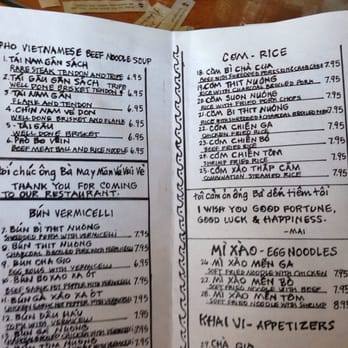 PHO VIETNAMESE BEEF NOODLE SOUP
1. TÁI NẠM GÂN SÁCH
RARE STEAK TENDON AND TRIPE 6.95
2. TÁI GÂN SÁCH TRIPE
WELL DONE BRISKET TENDON & 6.95
3. TÁI NẠM GÂN
FLANK AND TENDON 6.95
4. CHÍN NẠM VÈ DÒN
WELL DONE BRISKET AND FLANK 6.95
5 - TÁI SÁU
WELL DONE BRISKET 6.95
6 - PHỞ BÒ VIÊN
BEEF MEAT BALL AND RICE NOODLE 6.95
chúc ông Bà May Mắn Vui Vẻ
THANK YOU FOR COMING
TO OUR RESTAURANT.
BÚN VERMICELLI
7. BÚN BÌ THỊT NƯỚNG
SHREDDED PORK WITH VERMICELLI 7.95
8. BÚN THỊT NƯỚNG
CHARCOAL BROILED PORK WITH VERMICELLI 7.95
9. BÚN CHẢ GIÒ
EGG ROLLS WITH VERMICELLI 7.95
10. BÚN BÒ XÀO XẢ ỚT
7.95
11. BÚN GÀ XÀO XẢ ỚT
7.95
12. BÚN ĐẬU HẦU
TOFU WITH VERMICELLI 7.95
BÚN GÀ NƯỚNG
7.95
CƠM - RICE
18. CƠM BÌ CHẢ CUA
7.95
19. CƠM THỊT NƯỚNG
RICE WITH CHARCOAL BROILED PORK 7.95
20. CƠM SƯỜN NƯỚNG
RICE WITH FRIED PORK CHOPS 7.95
21. CƠM BÌ THỊT NƯỚNG
7.95
22. CƠM CHIÊN GÀ
CHICKEN FRIED RICE 7.95
23. CƠM CHIÊN BÒ
BEEF FRIED RICE 7.95
24. CƠM CHIÊN TÔM
SHRIMP FRIED RICE 7.95
25. CƠM XÀO THẬP CẨM
COMBINATION STEAMED RICE 7.95
tôi cảm ơn ông Bà đến tiệm tôi
I WISH YOU GOOD FORTUNE,
GOOD LUCK & HAPPINESS.
-MAI
MÌ XÀO - EGG NOODLES
26 MÌ XÀO MỀN GÀ
SOFT FRIED NOODLE WITH CHICKEN 7.95
27 MÌ XÀO MỀN BÒ
SOFT FRIED NOODLE WITH BEEF 7.95
28. MÌ XÀO MỀN TÔM
SOFT FRIED NOODLE WITH SHRIMP 8.95
KHAI VỊ - APPETIZERS
CHẢ GIÒ